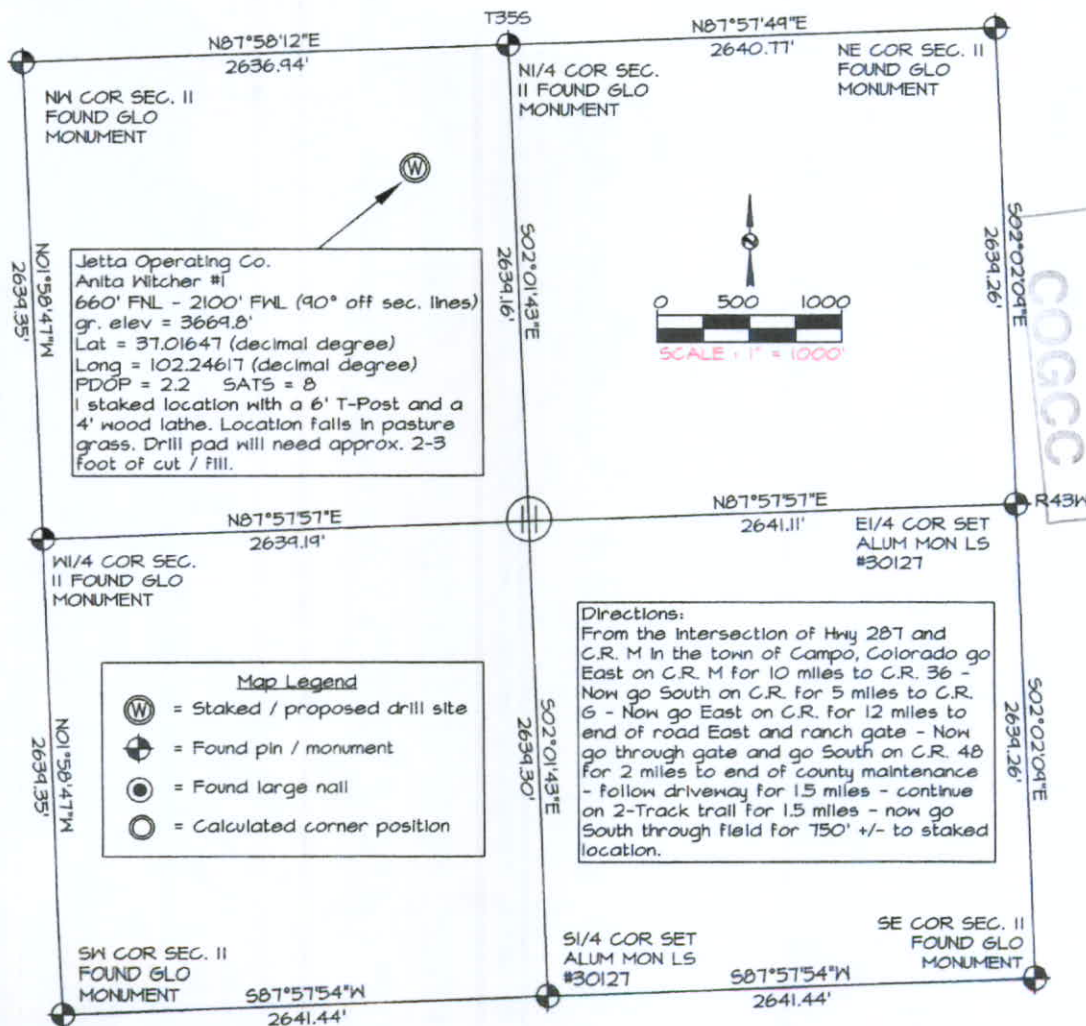 T35S
N87°58'12"E
2636.94'
N87°57'49"E
2640.77'
NW COR SEC. 11
FOUND GLO
MONUMENT
N1/4 COR SEC.
11 FOUND GLO
MONUMENT
NE COR SEC. 11
FOUND GLO
MONUMENT
W
N
N01°58'47"W
2639.35'
S02°01'43"E
2639.16'
S02°02'09"E
2639.26'
COGCC
Jetta Operating Co.
Anita Witcher #1
660' FNL - 2100' FWL (90° off sec. lines)
gr. elev = 3669.8'
Lat = 37.01647 (decimal degree)
Long = 102.24617 (decimal degree)
PDOP = 2.2 SATS = 8
I staked location with a 6' T-Post and a
4' wood lathe. Location falls in pasture
grass. Drill pad will need approx. 2-3
foot of cut / fill.
0 500 1000
SCALE : 1" = 1000'
N87°57'57"E
2639.19'
11
N87°57'57"E
2641.11'
R43W
W1/4 COR SEC.
11 FOUND GLO
MONUMENT
E1/4 COR SET
ALUM MON LS
#30127
Map Legend
W = Staked / proposed drill site
= Found pin / monument
= Found large nail
= Calculated corner position
N01°58'47"W
2639.35'
S02°01'43"E
2639.30'
Directions:
From the intersection of Hwy 287 and
C.R. M in the town of Campo, Colorado go
East on C.R. M for 10 miles to C.R. 36 -
Now go South on C.R. for 5 miles to C.R.
G - Now go East on C.R. for 12 miles to
end of road East and ranch gate - Now
go through gate and go South on C.R. 48
for 2 miles to end of county maintenance
- follow driveway for 1.5 miles - continue
on 2-Track trail for 1.5 miles - now go
South through field for 750' +/- to staked
location.
S02°02'09"E
2639.26'
SW COR SEC. 11
FOUND GLO
MONUMENT
S87°57'54"W
2641.44'
S1/4 COR SET
ALUM MON LS
#30127
S87°57'54"W
2641.44'
SE COR SEC. 11
FOUND GLO
MONUMENT